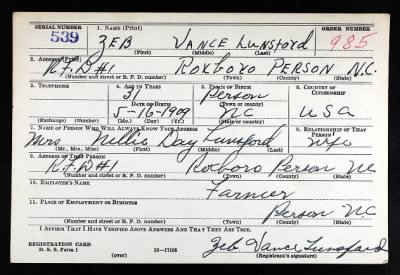 SERIAL NUMBER 1. NAME (Print) ORDER NUMBER
539 ZEB VANCE LUNSFORD 985
(First) (Middle) (Last)
2. ADDRESS (Print)
R.F.D#1 ROXBORO PERSON N.C.
(Number and street or R. F. D. number) (Town) (County) (State)
3. TELEPHONE 4. AGE IN YEARS 5. PLACE OF BIRTH 6. COUNTRY OF CITIZENSHIP
31 Person
DATE OF BIRTH (Town or county)
5-16-1909 NC USA
(Exchange) (No.) (Mo.) (Day) (Yr.) (State or country)
7. NAME OF PERSON WHO WILL ALWAYS KNOW YOUR ADDRESS 8. RELATIONSHIP OF THAT PERSON
Mrs Nellie Day Lunsford Wife
(Mr., Mrs., Miss) (First) (Middle) (Last)
9. ADDRESS OF THAT PERSON
R.F.D#1 Roxboro Person NC
(Number and street or R. F. D. number) (Town) (County) (State)
10. EMPLOYER'S NAME
Farmer
11. PLACE OF EMPLOYMENT OR BUSINESS
Person NC
(Number and street or R. F. D. number) (Town) (County) (State)
I AFFIRM THAT I HAVE VERIFIED ABOVE ANSWERS AND THAT THEY ARE TRUE.
REGISTRATION CARD Zeb Vance Lunsford
D. S. S. Form 1 (over) 16-17105 (Registrant's signature)